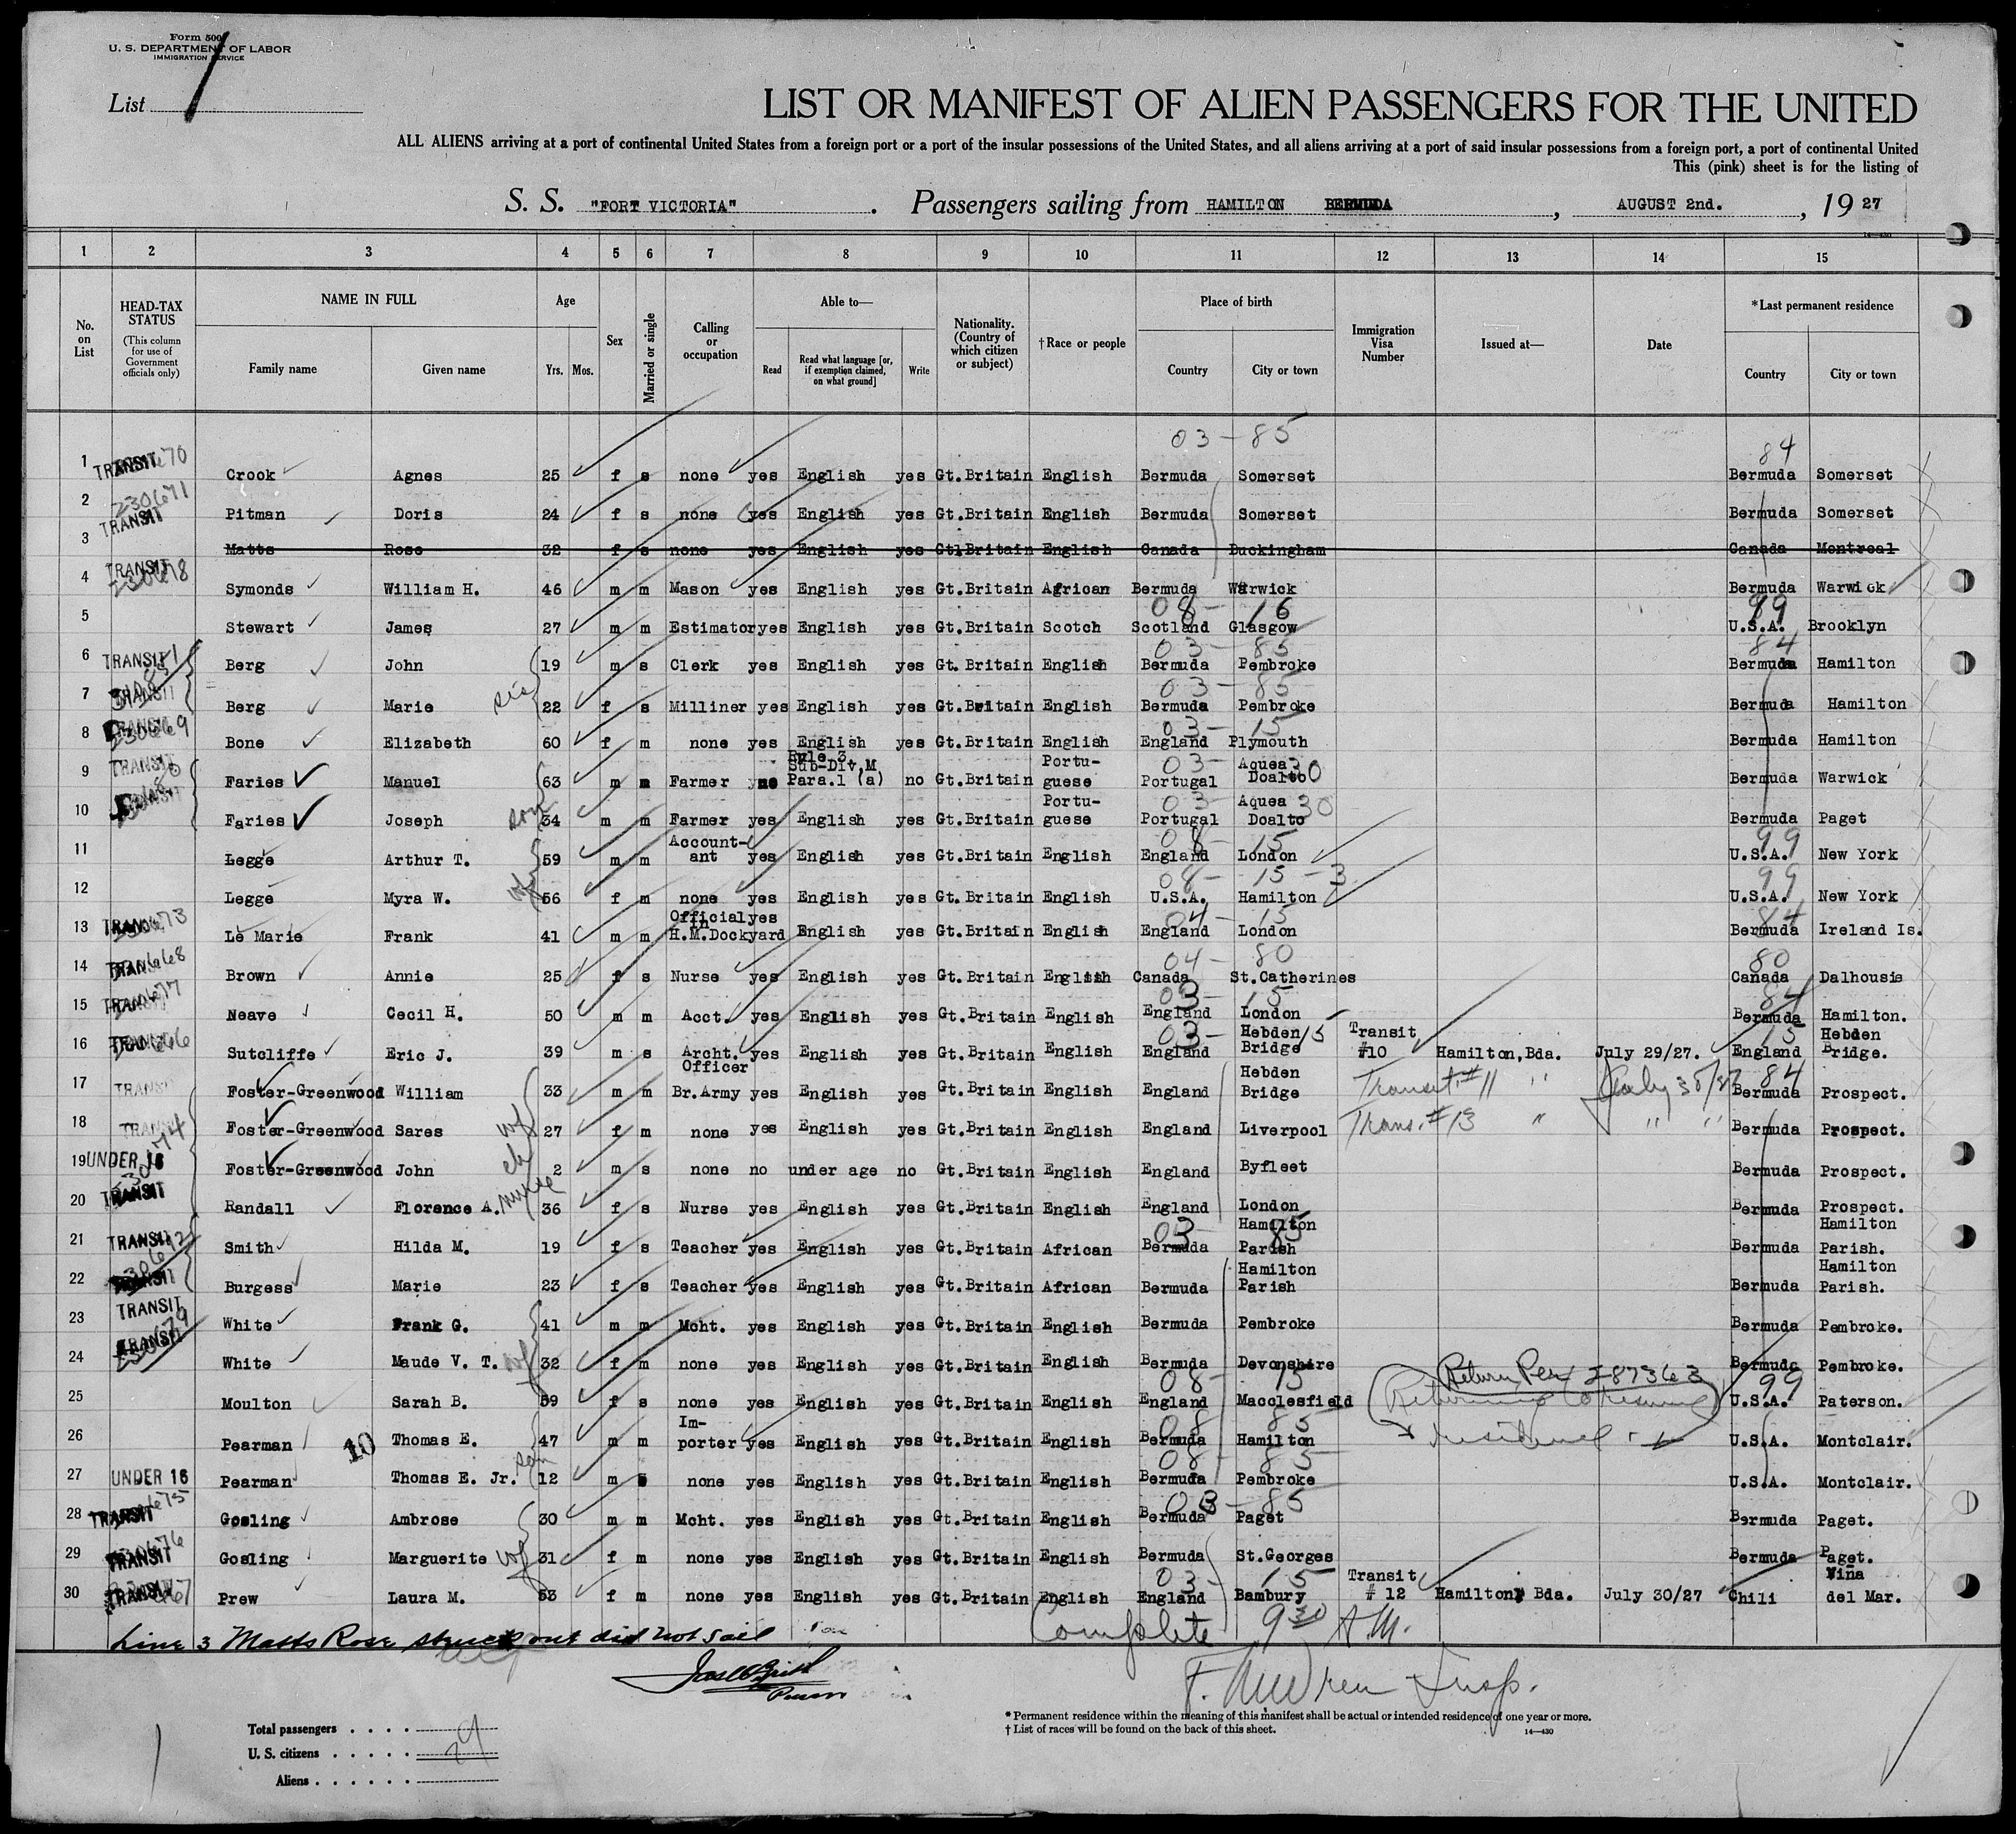 Form 500
U. S. DEPARTMENT OF LABOR
IMMIGRATION SERVICE
List 1
LIST OR MANIFEST OF ALIEN PASSENGERS FOR THE UNITED
ALL ALIENS arriving at a port of continental United States from a foreign port or a port of the insular possessions of the United States, and all aliens arriving at a port of said insular possessions from a foreign port, a port of continental United
This (pink) sheet is for the listing of
S. S. "FORT VICTORIA". Passengers sailing from HAMILTON BERMUDA, AUGUST 2nd., 19 27
14—430
1 2 3 4 5 6 7 8 9 10 11 12 13 14 15
No. on List
HEAD-TAX STATUS (This column for use of Government officials only)
NAME IN FULL Family name Given name
Age Yrs. Mos.
Sex
Married or single
Calling or occupation
Able to— Read Read what language [or, if exemption claimed, on what ground] Write
Nationality. (Country of which citizen or subject)
†Race or people
Place of birth Country City or town
Immigration Visa Number
Issued at—
Date
*Last permanent residence Country City or town
03 - 85 84
1 TRANSIT Crook Agnes 25 f s none yes English yes Gt.Britain English Bermuda Somerset Bermuda Somerset
2 230671 TRANSIT Pitman Doris 24 f s none yes English yes Gt.Britain English Bermuda Somerset Bermuda Somerset
3 Matts Rose 32 f s none yes English yes Gt.Britain English Canada Buckingham Canada Montreal
4 TRANSIT Symonds William H. 46 m m Mason yes English yes Gt.Britain African Bermuda Warwick Bermuda Warwick
08 - 16 99
5 Stewart James 27 m m Estimator yes English yes Gt.Britain Scotch Scotland Glasgow U.S.A. Brooklyn
03 - 85 84
6 TRANSIT Berg John 19 m s Clerk yes English yes Gt.Britain English Bermuda Pembroke Bermuda Hamilton
03 - 85
7 TRANSIT Berg Marie sis 22 f s Milliner yes English yes Gt.Britain English Bermuda Pembroke Bermuda Hamilton
03 - 15
8 TRANSIT Bone Elizabeth 60 f m none yes English yes Gt.Britain English England Plymouth Bermuda Hamilton
9 TRANSIT Faries Manuel 63 m m Farmer no Rule 3 Sub-Div.M Para.1 (a) no Gt.Britain Portuguese 03- Portugal Aquea Doalto 30 Bermuda Warwick
10 TRANSIT Faries Joseph son 34 m m Farmer yes English yes Gt.Britain Portuguese 03- Portugal Aquea Doalto 30 Bermuda Paget
08 - 15 99
11 Legge Arthur T. 59 m m Account-ant yes English yes Gt.Britain English England London U.S.A. New York
08 - 15 - 3 99
12 Legge Myra W. wf 56 f m none yes English yes Gt.Britain English U.S.A. Hamilton U.S.A. New York
04 - 15 84
13 TRANSIT Le Marie Frank 41 m m Official in H.M.Dockyard yes English yes Gt.Britain English England London Bermuda Ireland Is.
04 - 80 80
14 TRANSIT Brown Annie 25 f s Nurse yes English yes Gt.Britain English Canada St.Catherines Canada Dalhousie
03 - 15 84
15 TRANSIT Neave Cecil H. 50 m m Acct. yes English yes Gt.Britain English England London Bermuda Hamilton.
03 - 15 15
16 TRANSIT Sutcliffe Eric J. 39 m s Archt. yes English yes Gt.Britain English England Hebden Bridge Transit #10 Hamilton, Bda. July 29/27. England Hebden Bridge.
17 TRANSIT Foster-Greenwood William 33 m m Officer Br.Army yes English yes Gt.Britain English England Hebden Bridge Transit #11 " July 30/27 84 Bermuda Prospect.
18 TRANSIT Foster-Greenwood Sares wf 27 f m none yes English yes Gt.Britain English England Liverpool Trans. #13 " " " Bermuda Prospect.
19 UNDER 16 Foster-Greenwood John ch 2 m s none no under age no Gt.Britain English England Byfleet Bermuda Prospect.
20 TRANSIT Randall Florence A. nurse 36 f s Nurse yes English yes Gt.Britain English England London Bermuda Prospect.
03 - 85
21 TRANSIT Smith Hilda M. 19 f s Teacher yes English yes Gt.Britain African Bermuda Hamilton Parish Bermuda Hamilton Parish.
22 TRANSIT Burgess Marie 23 f s Teacher yes English yes Gt.Britain African Bermuda Hamilton Parish Bermuda Hamilton Parish.
23 TRANSIT White Frank G. 41 m m Mcht. yes English yes Gt.Britain English Bermuda Pembroke Bermuda Pembroke.
24 TRANSIT White Maude V. T. wf 32 f m none yes English yes Gt.Britain English Bermuda Devonshire Bermuda Pembroke.
08 - 15 Return Per 287363 99
25 Moulton Sarah B. 59 f s none yes English yes Gt.Britain English England Macclesfield Returning to resume U.S.A. Paterson.
08 85 residence
26 10 Pearman Thomas E. 47 m m Im-porter yes English yes Gt.Britain English Bermuda Hamilton U.S.A. Montclair.
08 - 85
27 UNDER 16 Pearman Thomas E. Jr. son 12 m s none yes English yes Gt.Britain English Bermuda Pembroke U.S.A. Montclair.
03 - 85
28 TRANSIT Gosling Ambrose 30 m m Mcht. yes English yes Gt.Britain English Bermuda Paget Bermuda Paget.
29 TRANSIT Gosling Marguerite wf 31 f m none yes English yes Gt.Britain English Bermuda St.Georges Bermuda Paget.
03 - 15
30 TRANSIT Prew Laura M. 53 f m none yes English yes Gt.Britain English England Bambury Transit # 12 Hamilton, Bda. July 30/27 Chili Viña del Mar.
Line 3 Matts Rose struck out did not sail
Complete 9 30 A.M.
Purser
Insp.
* Permanent residence within the meaning of this manifest shall be actual or intended residence of one year or more.
† List of races will be found on the back of this sheet.
14—430
Total passengers . . . .
U. S. citizens . . . . . 29
Aliens . . . . . .